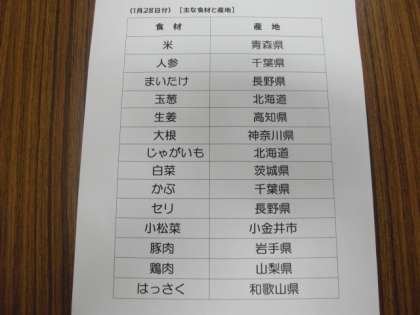 (1月28日分) [主な食材と産地]
食材 産地
米 青森県
人参 千葉県
まいたけ 長野県
玉葱 北海道
生姜 高知県
大根 神奈川県
じゃがいも 北海道
白菜 茨城県
かぶ 千葉県
セリ 長野県
小松菜 小金井市
豚肉 岩手県
鶏肉 山梨県
はっさく 和歌山県